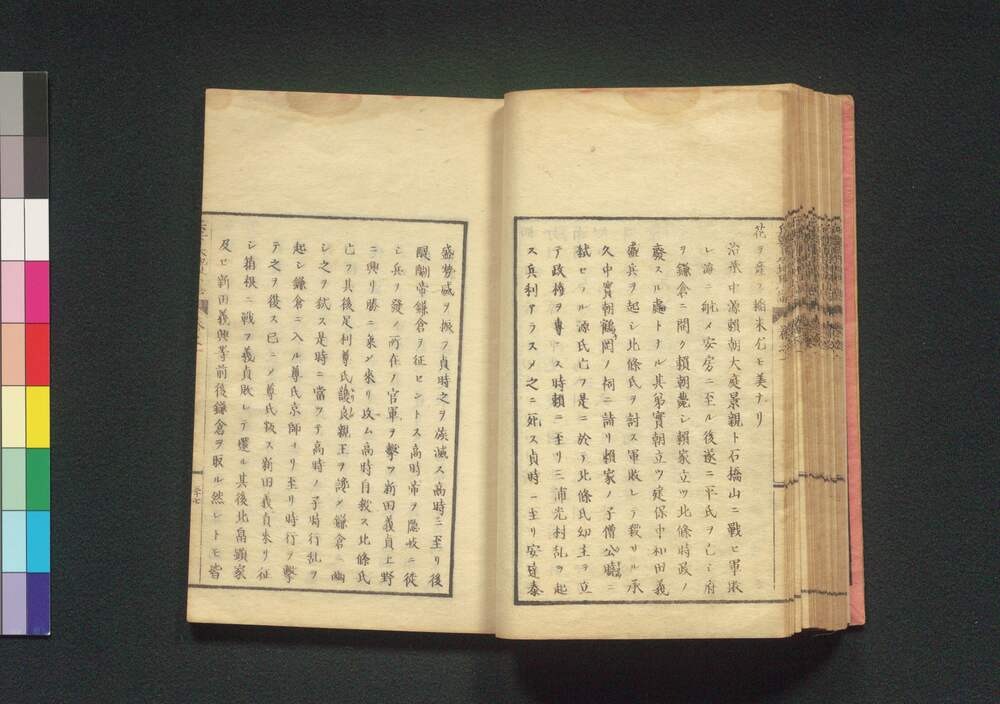 花ヲ産ス稲米尤モ美ナリ
治承中源頼朝大庭景親ト石橋山ニ戰ヒ軍敗
レ海ニ航メ安房ニ至ル後遂ニ平氏ヲ亡シ府
ヲ鎌倉ニ開ク頼朝薨シ頼家立ツ北條時政ノ
廢スル所トナル其弟實朝立ツ建保中和田義
盛兵ヲ起シ北條氏ヲ討ス軍敗レテ殺サル承
久中實朝鶴岡ノ祠ニ詣リ頼家ノ子僧公暁ニ
弑セラル源氏亡フ是ニ於テ北條氏幼主ヲ立
テ政権ヲ専ニス時頼ニ至リ三浦光村乱ヲ起
ス兵利アラスメ之ニ死ス貞時ニ至リ安達泰
盛勢威ヲ振フ貞時之ヲ族滅ス高時ニ至リ後
醍醐帝鎌倉ヲ征セントス高時帝ヲ隠岐ニ徙
シ兵ヲ發メ所在ノ官軍ヲ擊ツ新田義貞上野
ニ興リ勝ニ乗シ来リ攻ム高時自殺ス北條氏
亡フ其後足利尊氏護良親王ヲ譖メ鎌倉ニ幽
シ之ヲ弑ス是時ニ當ツテ高時ノ子時行乱ヲ
起シ鎌倉ニ入ル尊氏京師ヨリ至リ時行ヲ擊
テ之ヲ復ス已ニメ尊氏叛ス新田義貞来リ征
シ箱根ニ戰フ義貞敗レテ還ル其後北畠顕家
及ヒ新田義興等前後鎌倉ヲ取ル然レトモ皆